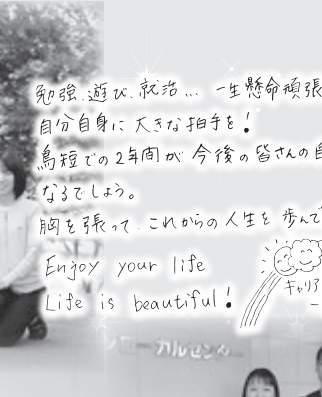 勉強、遊び、就活... 一生懸命頑張
自分自身に大きな拍手を！
鳥短での2年間が今後の皆さんの自
なるでしょう。
胸を張って、これからの人生を歩んで
Enjoy your life
Life is beautiful!
キャリア
ーカルセンター